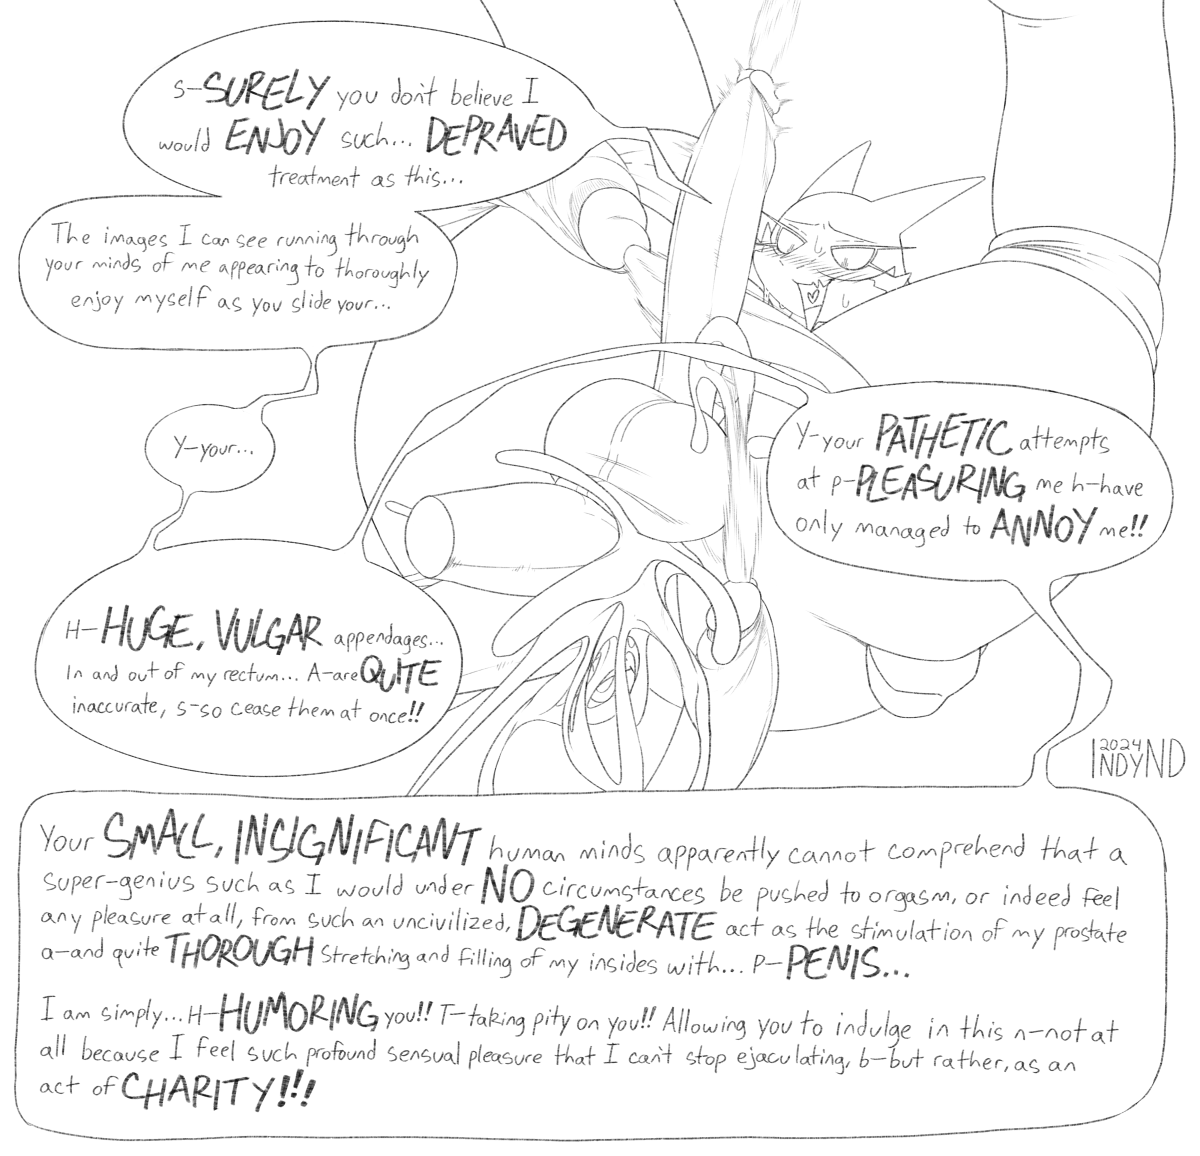 S-SURELY you don't believe I
would ENJOY such... DEPRAVED
treatment as this...
The images I can see running through
your minds of me appearing to thoroughly
enjoy myself as you slide your...
Y-your...
H-HUGE, VULGAR appendages...
In and out of my rectum... A-are QUITE
inaccurate, s-so cease them at once!!
Y-your PATHETIC attempts
at p-PLEASURING me h-have
only managed to ANNOY me!!
2024
INDYND
Your SMALL, INSIGNIFICANT human minds apparently cannot comprehend that a
super-genius such as I would under NO circumstances be pushed to orgasm, or indeed feel
any pleasure at all, from such an uncivilized, DEGENERATE act as the stimulation of my prostate
a-and quite THOROUGH stretching and filling of my insides with... P-PENIS...
I am simply... H-HUMORING you!! T-taking pity on you!! Allowing you to indulge in this n-not at
all because I feel such profound sensual pleasure that I can't stop ejaculating, b-but rather, as an
act of CHARITY!!!